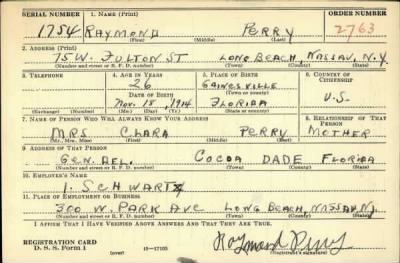 SERIAL NUMBER 1. NAME (Print) ORDER NUMBER
1754 RAYMOND PERRY 2763
(First) (Middle) (Last)
2. ADDRESS (Print)
75 W. FULTON ST LONG BEACH, NASSAU, N.Y
(Number and street or R. F. D. number) (Town) (County) (State)
3. TELEPHONE 4. AGE IN YEARS 5. PLACE OF BIRTH 6. COUNTRY OF CITIZENSHIP
26 GAINESVILLE
DATE OF BIRTH (Town or county)
Nov. 18, 1914 FLORIDA U.S.
(Exchange) (Number) (Mo.) (Day) (Yr.) (State or country)
7. NAME OF PERSON WHO WILL ALWAYS KNOW YOUR ADDRESS 8. RELATIONSHIP OF THAT PERSON
MRS CLARA PERRY MOTHER
(Mr., Mrs., Miss) (First) (Middle) (Last)
9. ADDRESS OF THAT PERSON
GEN. DEL. COCOA DADE FLORIDA
(Number and street or R. F. D. number) (Town) (County) (State)
10. EMPLOYER'S NAME
I. SCHWARTZ
11. PLACE OF EMPLOYMENT OR BUSINESS
300 W. PARK AVE LONG BEACH, NASSAU, N.Y
(Number and street or R. F. D. number) (Town) (County) (State)
I AFFIRM THAT I HAVE VERIFIED ABOVE ANSWERS AND THAT THEY ARE TRUE.
REGISTRATION CARD
D. S. S. Form 1 (over) 16—17105 Raymond Perry
(Registrant's signature)